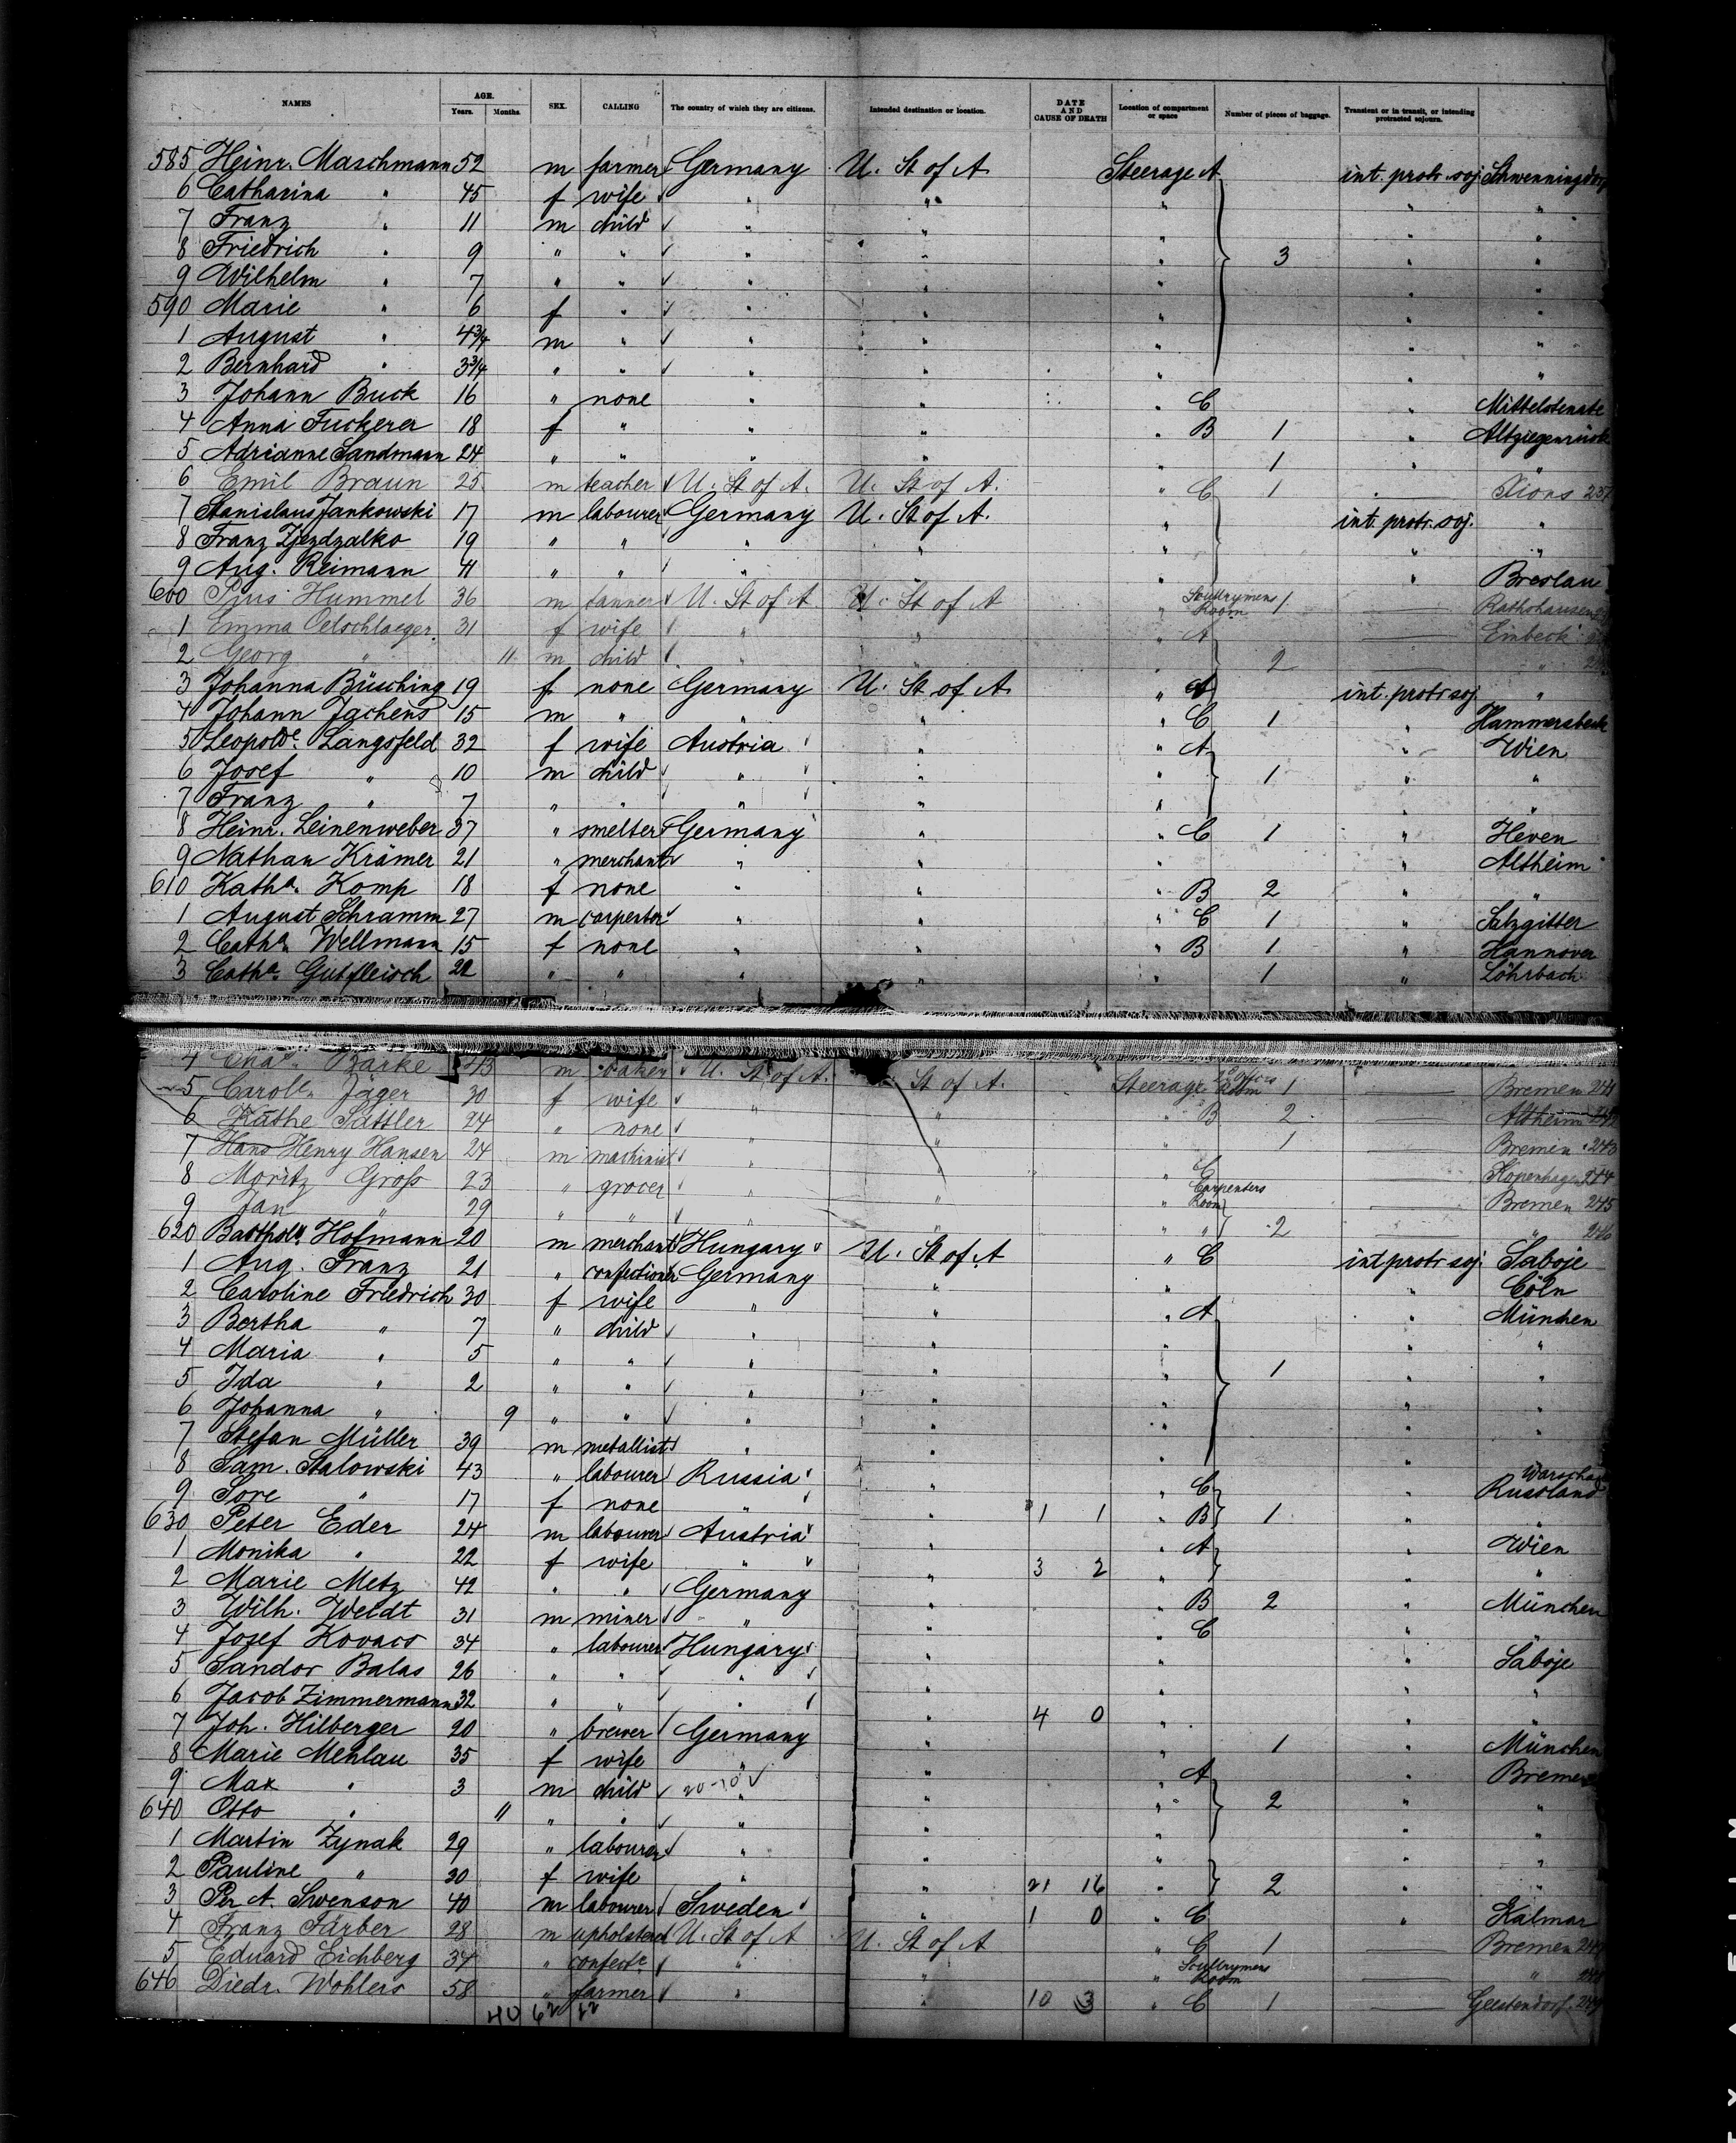 NAMES AGE. Years. Months. SEX. CALLING The country of which they are citizens. Intended destination or location. DATE AND CAUSE OF DEATH Location of compartment or space Number of pieces of baggage. Transient or in transit, or intending protracted sojourn.
585 Heinr. Maschmann 52 m farmer Germany U. St of A Steerage A int. protr. soj. Schwenningdorf
6 Catharina " 45 f wife " " " " "
7 Franz " 11 m child " " " " "
8 Friedrich " 9 " " " " " 3 " "
9 Wilhelm " 7 " " " " " " "
590 Marie " 6 f " " " " " "
1 August " 4 3/4 m " " " " " "
2 Bernhard " 3 3/4 " " " " " " "
3 Johann Buck 16 " none " " " C " Mittelstenate
4 Anna Fuckerer 18 f " " " " B 1 " Altziegenrück
5 Adrianne Sandmann 24 " " " " " 1 " "
6 Emil Braun 25 m teacher U. St of A. U. St of A. " C 1 Xions 237
7 Stanislaus Jankowski 17 m labourer Germany U. St of A. " int. protr. soj. "
8 Franz Zjezdzalko 19 " " " " " " "
9 Aug. Reimann 41 " " " " " " Breslau
600 Pius Hummel 36 m tanner U. St of A U. St of A " Scullrymens Room 1 Rathshausen
1 Emma Oelschlaeger 31 f wife " " " A Einbeck
2 Georg " 11 m child " " " 2 "
3 Johanna Büsching 19 f none Germany U. St of A. " A int. protr soj "
4 Johann Jachens 15 m " " " " C 1 " Hammersbeck
5 Leopolde. Langsfeld 32 f wife Austria " " A " Wien
6 Josef " 10 m child " " " 1 " "
7 Franz " 7 " " " " " " "
8 Heinr. Leinenweber 37 " smelter Germany " " C 1 " Heven
9 Nathan Krämer 21 " merchant " " " " Altheim
610 Katha. Komp 18 f none " " " B 2 " "
1 August Schramm 27 m carpenter " " " C 1 " Salzgitter
2 Catha. Wellmann 15 f none " " " B 1 " Hannover
3 Catha. Gutfleisch 22 " " " " " 1 " Löhrbach
4 Chas. Barke 43 m baker U. St of A. St of A. Steerage Room 1 Bremen 241
5 Caroln. Jäger 30 f wife " " " B 2 Altheim 242
6 Käthe Sattler 24 " none " " " 1 Bremen 243
7 Hans Henry Hansen 24 m machinist " " " C Kopenhagen 244
8 Moritz Gross 23 " grocer " " " Carpenters Room Bremen 245
9 Jan " 29 " " " " " " 2 " 246
620 Bartholn. Hofmann 20 m merchant Hungary U. St of A " C int protr soj Saboje
1 Aug. Franz 21 " confectioner Germany " " " Cöln
2 Caroline Friedrich 30 f wife " " " A " München
3 Bertha " 7 " child " " " " "
4 Maria " 5 " " " " " 1 " "
5 Ida " 2 " " " " " " "
6 Johanna " 9 " " " " " " "
7 Stefan Müller 39 m metallist " " " "
8 Sam. Stalowski 43 " labourer Russia " " C " Warschau Russland
9 Sore " 17 f none " " 1 1 " B 1 " "
630 Peter Eder 24 m labourer Austria " " A " Wien
1 Monika " 22 f wife " " 3 2 " " "
2 Marie Metz 42 " " Germany " " B 2 " München
3 Wilh. Weidt 31 m miner " " " C " "
4 Josef Kovacs 34 " labourer Hungary " " " Saboje
5 Sandor Balas 26 " " " " " " "
6 Jacob Zimmermann 32 " " " " 4 0 " " "
7 Joh. Hilberger 20 " brewer Germany " " 1 " München
8 Marie Mehlau 35 f wife " " " A " Bremen
9 Max " 3 m child 20-10 " " " 2 " "
640 Otto " 11 " " " " " " "
1 Martin Zynak 29 " labourer " " " " "
2 Pauline " 30 f wife " " 21 16 " 2 " "
3 Per A. Swenson 40 m labourer Sweden " 1 0 " C " Kalmar
4 Franz Färber 28 m upholsterer U. St of A U. St of A " C 1 Bremen 247
5 Eduard Eichberg 34 " confectr. " " " Scullrymens Room " 248
646 Diedr. Wohlers 58 " farmer " " 10 3 " C 1 Geestendorf 249
40 62 22